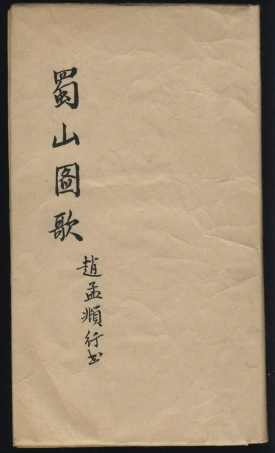 蜀山圖歌
趙孟頫行书